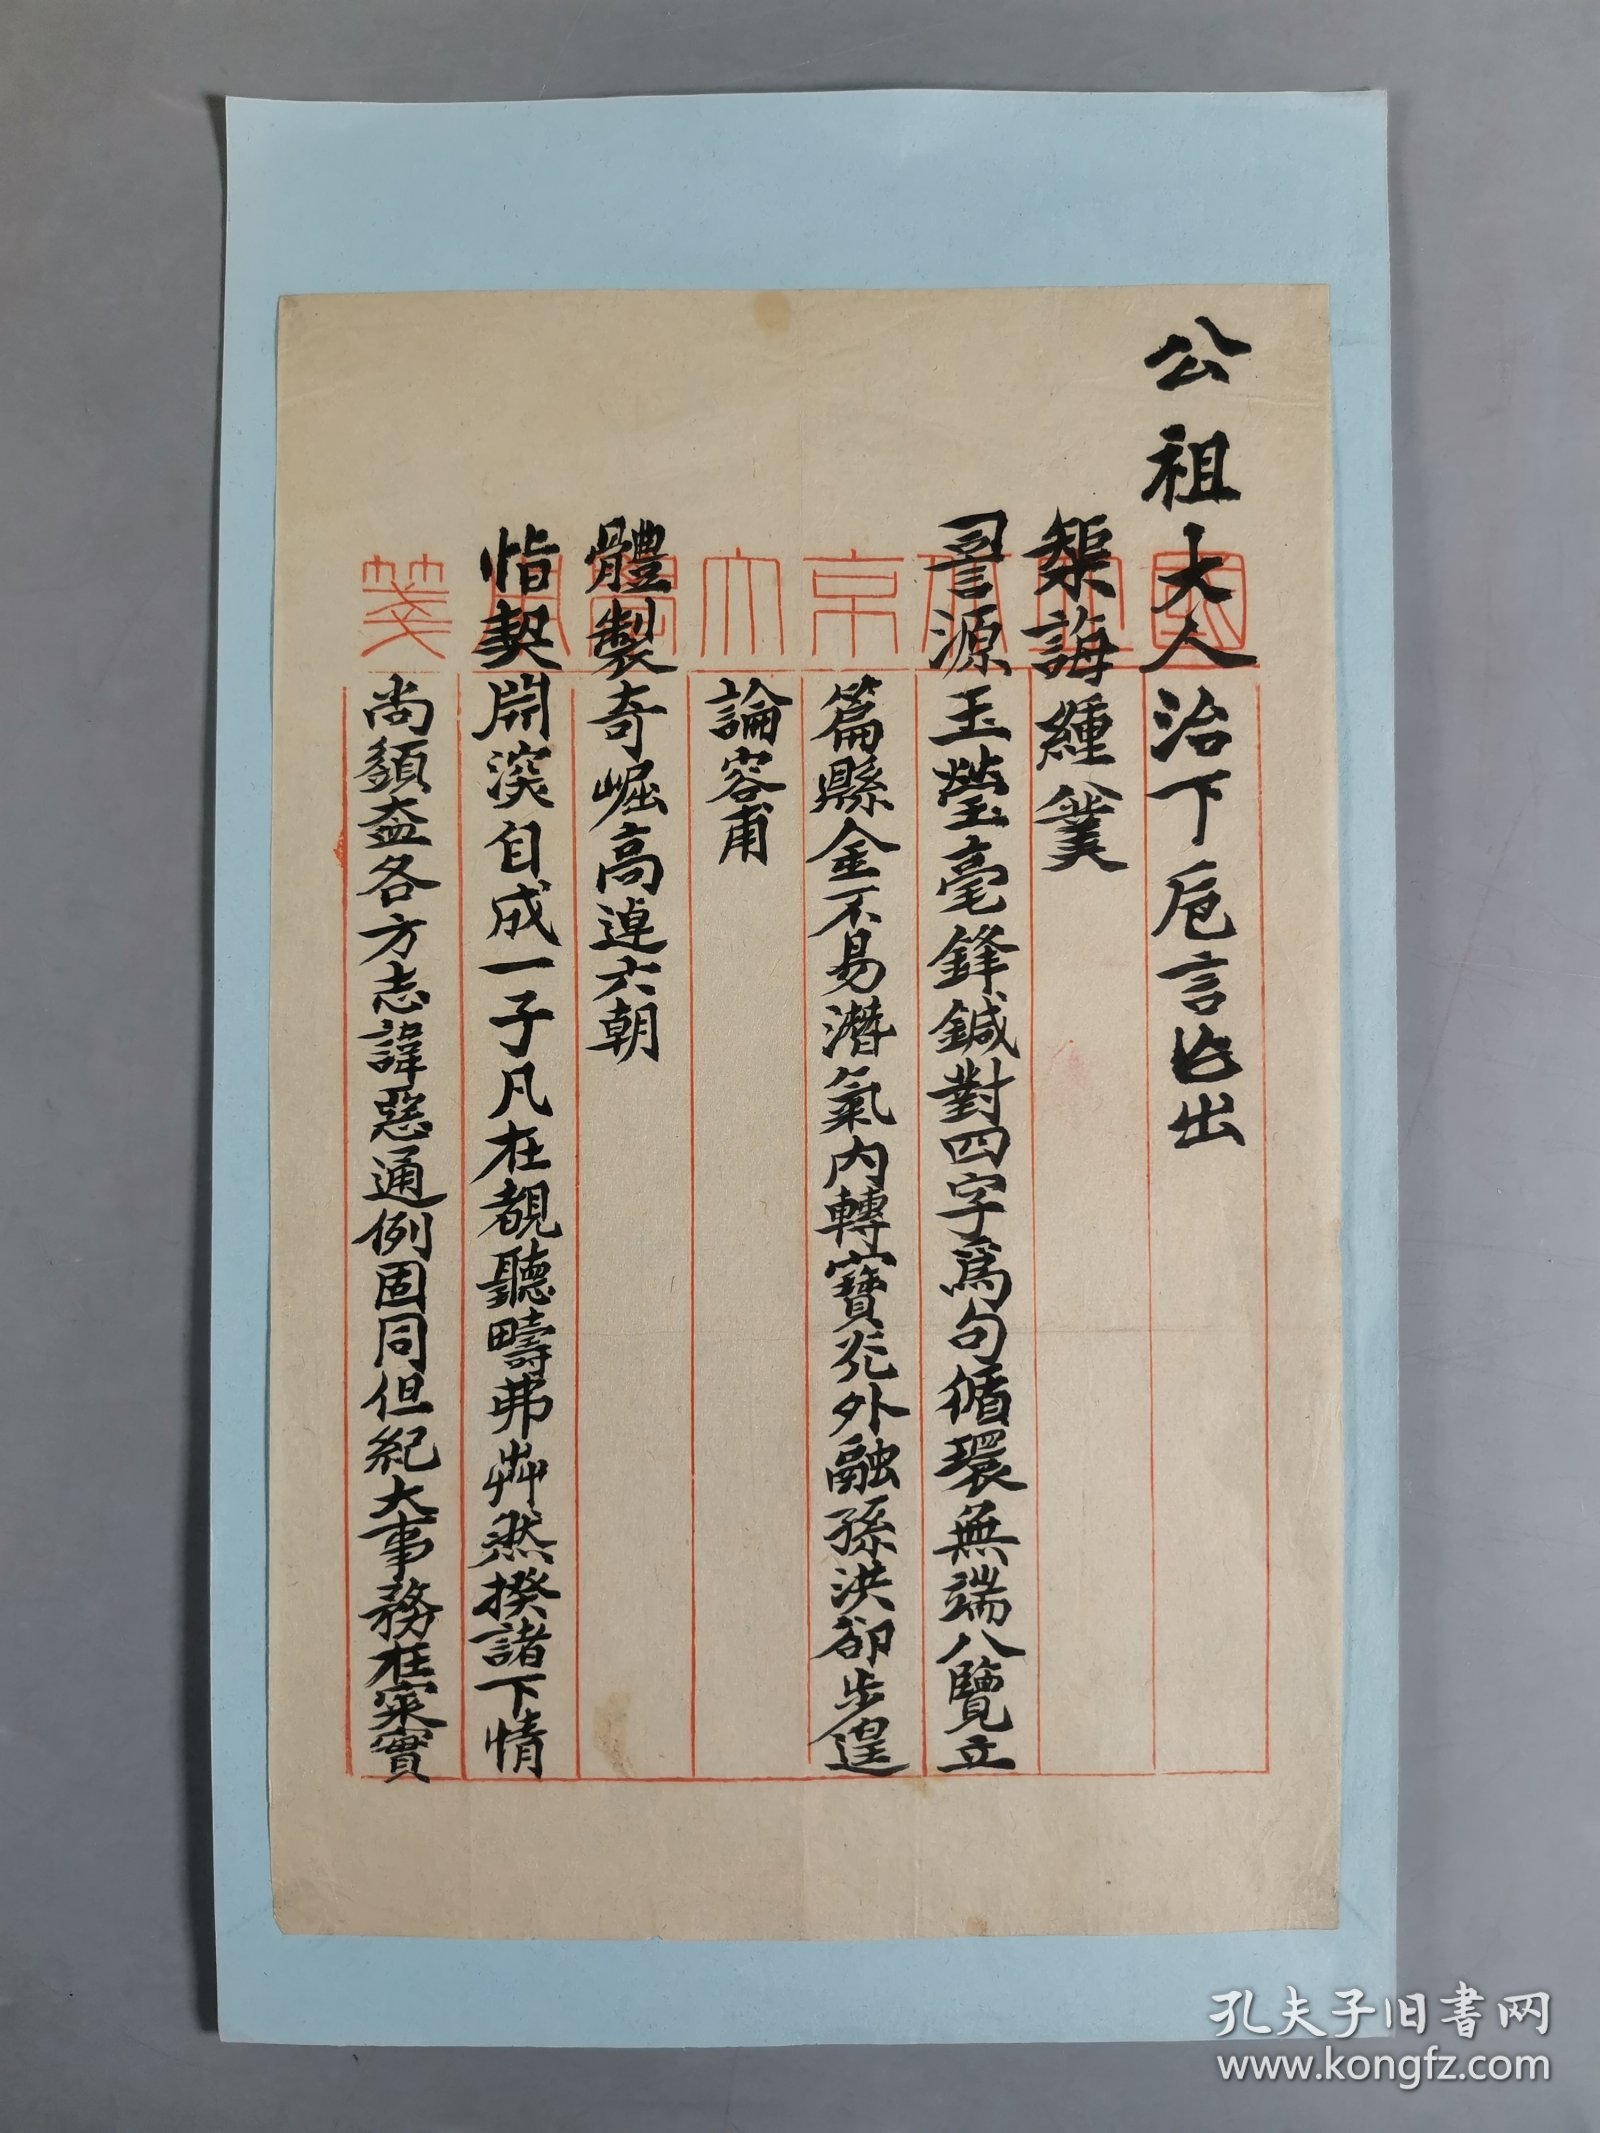 公祖大人治下卮言㠯出
榘誨緟
詞源玉瑩毫鋒鍼對四字為句循環無端八覽立
篇縣金不易潛氣內轉寶光外融孫洪卻步遑
論容甫
體製奇崛高連六朝
恉契開深自成一子凡在覩聽疇弗犇然揆諸下情
尚須益各方志諱惡通例固同但紀大事務在案實
國立北京大學用箋
孔夫子旧书网
www.kongfz.com